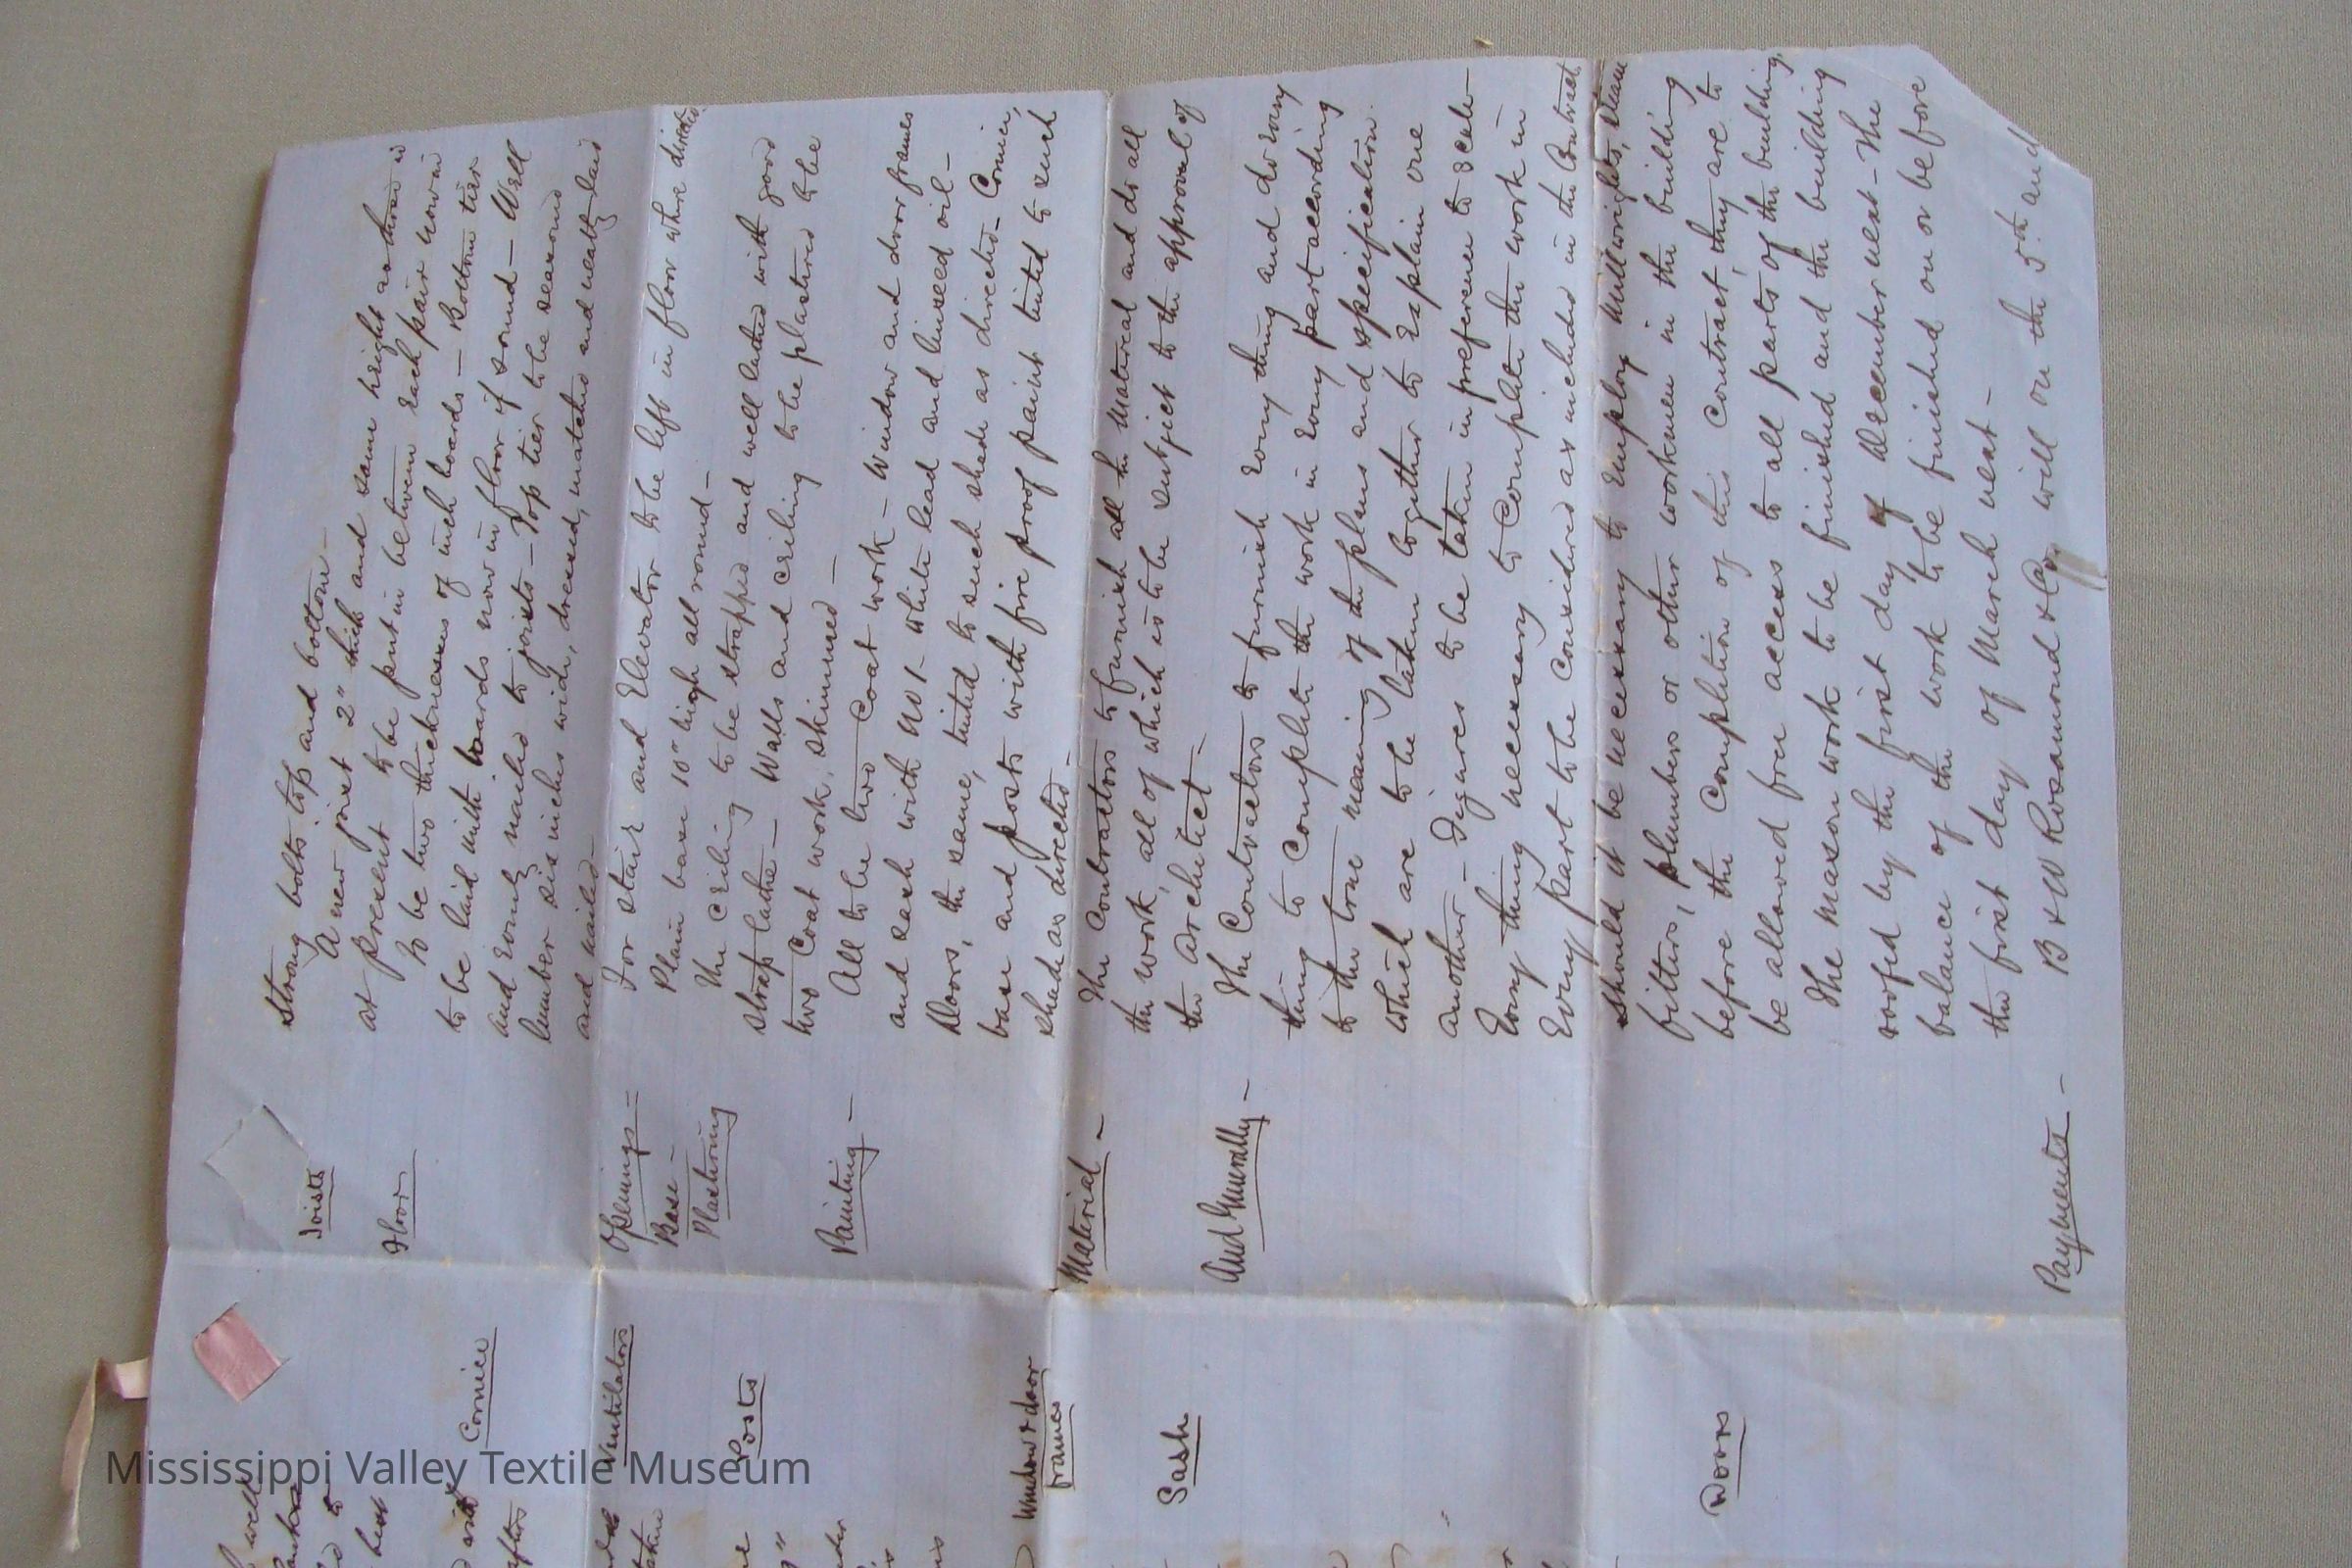 strong bolts top and bottom -
Joists
A new joist 2" thick and same height as those in
at present to be put in between each pair now in
Floor
To be two thicknesses of inch boards - Bottom tier
to be laid with boards now in floor if sound - Well
and evenly nailed to joists - Top tier to be seasoned
lumber six inches wide, dressed, matched and neatly laid
and nailed -
Openings =
For stair and Elevator to be left in floor where directed
Base -
Plain base 10" high all round -
Plastering
The ceiling to be strapped and well lathed with good
strap laths - Walls and ceiling to be plastered to be
two Coat work, skimmed -
Painting -
All to be two Coat work - Window and door frames
and sash with No 1 - white lead and linseed oil -
Doors, the same, tinted to such shade as directed - Cornice,
base and posts with fire proof paint tinted to such
shade as directed -
Material -
The Contractors to furnish all the Material and do all
the work, all of which is to be subject to the approval of
the Architect -
And Generally -
The Contractors to furnish Every thing and do Every
thing to Complete the work in Every part according
to the true meaning of the plans and specification.
which are to be taken together to Explain one
another - Figures to be taken in preference to scale
Every thing necessary to Complete the work in
Every part to be Considered as included in the Contract.
Should it be necessary to Employ Millwrights, steam
fitters, plumbers or other workmen in the building
before the Completion of this Contract, they are to
be allowed free access to all parts of the building,
The mason work to be finished and the building
roofed by the first day of December next - The
balance of the work to be finished on or before
the first day of March next -
Payments -
B & W Rosamond & Co, will on the 5th and
Cornice
Ventilators
Posts
Window & door
frames
Sash
Doors
well
best
Mississippi Valley Textile Museum